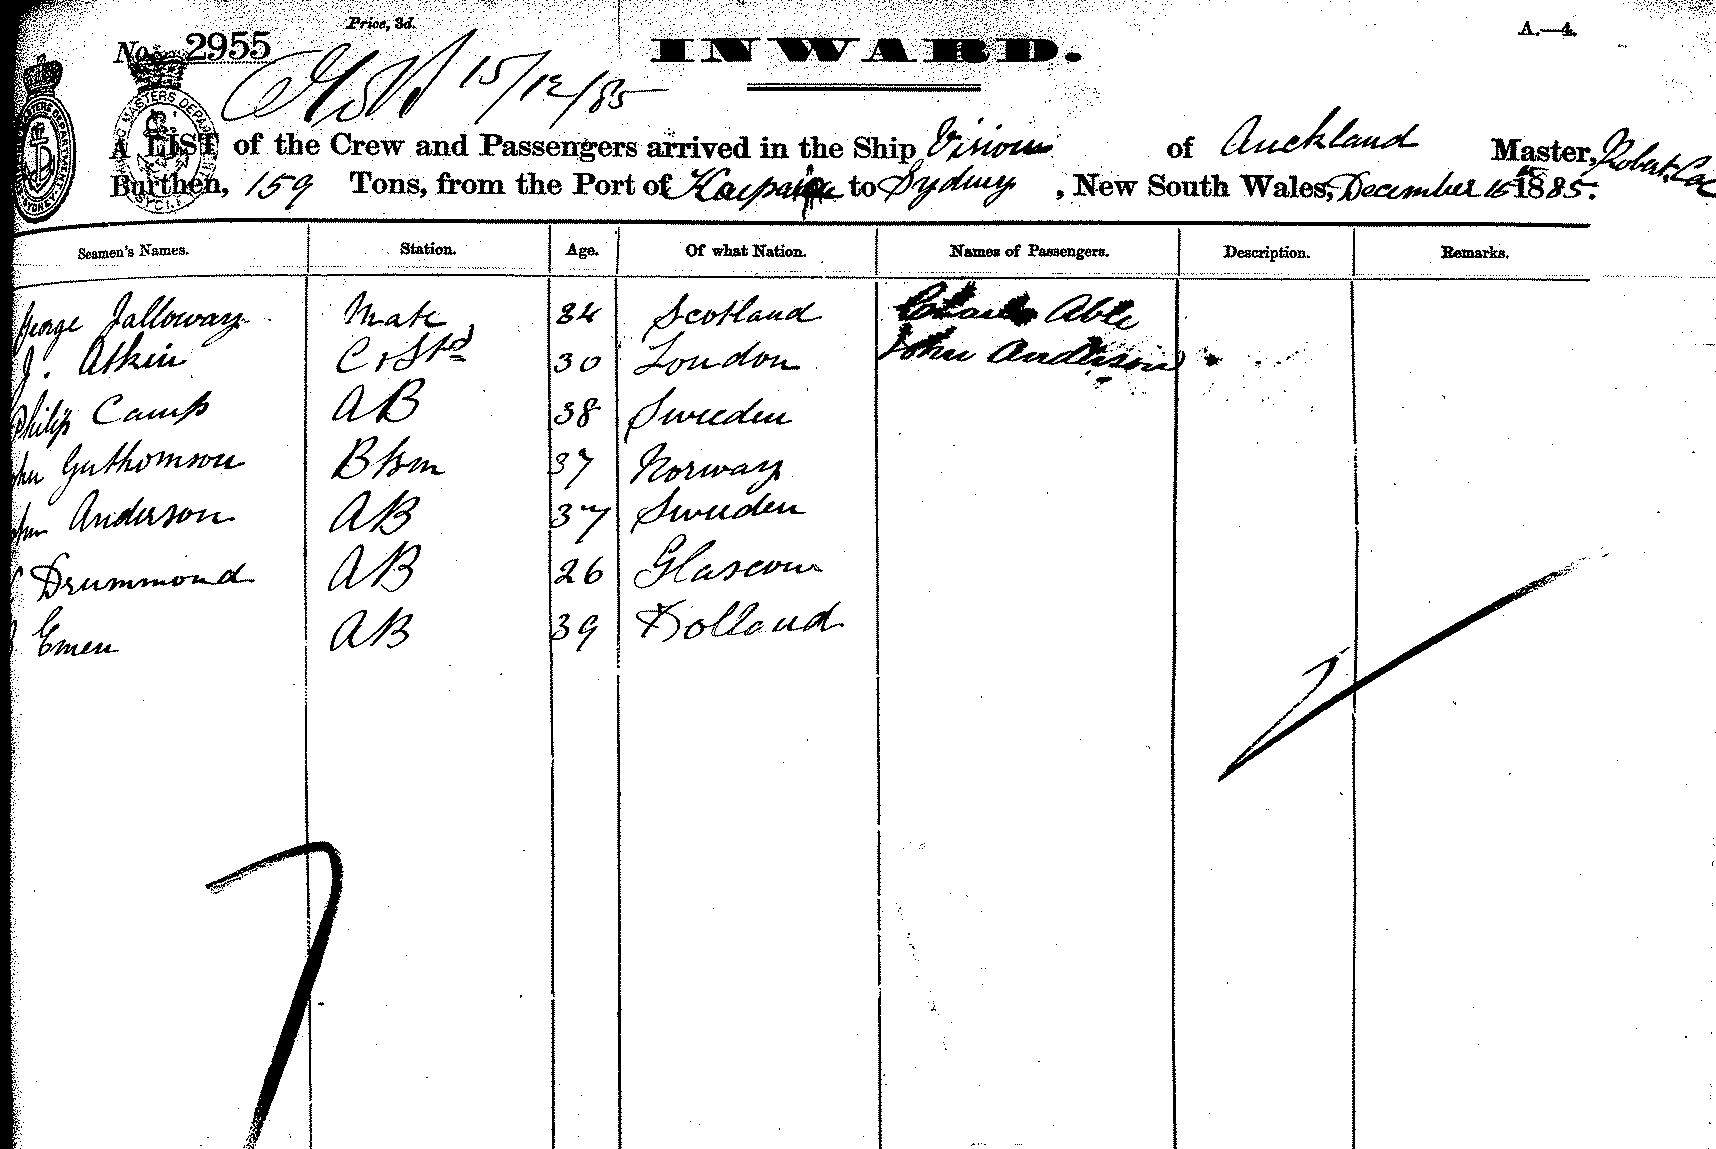 Price, 3d.
No. 2955
INWARD.
A.—4.
15/12/85
A LIST of the Crew and Passengers arrived in the Ship Visions of Auckland Master, Robert Cox
Burthen, 159 Tons, from the Port of Kaipara to Sydney, New South Wales, December 15th 1885.
Seamen's Names. Station. Age. Of what Nation. Names of Passengers. Description. Remarks.
George Jalloway Mate 34 Scotland Charles Able
J. Atkin C & Std 30 London John Anderson
Philip Camp AB 38 Sweeden
John Guthomson Btsm 37 Norway
John Anderson AB 37 Sweeden
Drummond AB 26 Glascow
Emen AB 39 Holland